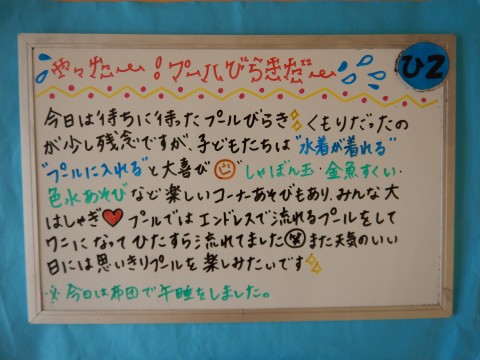 や々恋〜!プールびらきだ〜
ひ2
今日は待ちに待ったプールびらき くもりだったの
が少し残念ですが、子どもたちは"水着が着れる"
"プールに入れる"と大喜び しゃぼん玉・金魚すくい・
色水あそびなど楽しいコーナーあそびもあり、みんな大
はしゃぎ プールではエンドレスで流れるプールをして
ワニになってひたすら流れてました また天気のいい
日には思いきりプールを楽しみたいです
※今日は布団で午睡をしました。